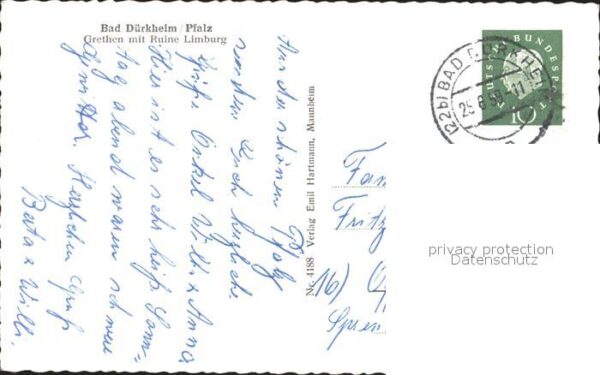 Bad Dürkheim / Pfalz
Grethen mit Ruine Limburg
Aus der schönen Pfalz
senden Euch herzliche
Grüße Onkel Willi & Anna
Hier ist es sehr heiß Sonn-
tag abend waren schwere
Gewitter. Herzlichen Gruß
Berta & Willi
Nr. 4188 Verlag Emil Hartmann, Mannheim
DEUTSCHE BUNDESPOST
10
(22b) BAD DÜRKHEIM
25.8.59-11
Fam
Fritz
16)
privacy protection
Datenschutz